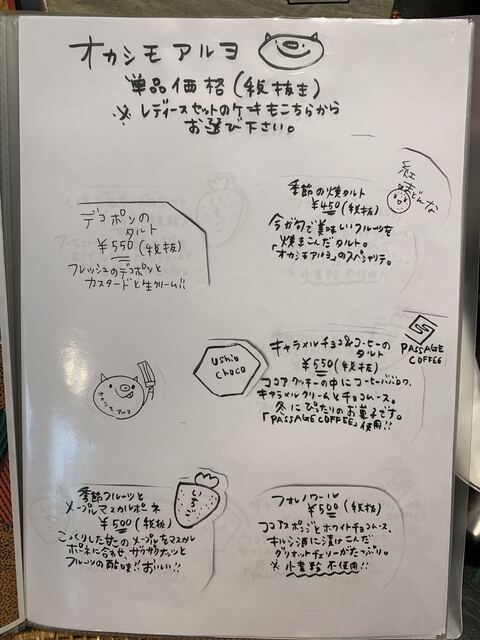 オカシモアルヨ
単品価格(税抜き)
※レディースセットのケーキもこちらから
お選び下さい。
デコポンの
タルト
¥550(税抜)
フレッシュのデコポンと
カスタードと生クリーム!!
季節の焼タルト
¥450(税抜)
今が旬で美味しいフルーツを
焼きこんだタルト。
「オカシモアルヨ」のスペシャリテ。
どんな
キャラメルチョコ&コーヒーの
タルト
¥550(税抜)
ココアクッキーの中にコーヒーババロワ、
キャラメルクリームとチョコムース。
冬にぴったりのお菓子です。
「PASSAGE COFFEE」使用!!
PASSAGE
COFFEE
ushio
choco
オカシモアルヨ
季節フルーツと
メープルマスカルポーネ
¥500(税抜)
こっくりした甘さのメープルをマスカル
ポーネに合わせ ザクザクナッツと
フルーツの酸味!!おいしい!!
フォレノワール
¥500(税抜)
ココアスポンジとホワイトチョコムース、
キルシュ酒に漬けこんだ
グリオットチェリーがたっぷり。
※小麦粉不使用!!